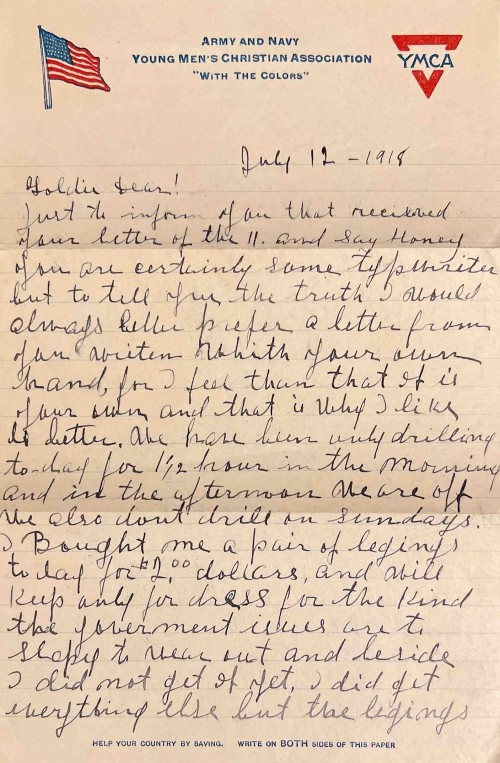 ARMY AND NAVY
YOUNG MEN'S CHRISTIAN ASSOCIATION
"WITH THE COLORS"
YMCA
July 12 - 1918
Goldie Dear!
Just to inform you that recieved
your letter of the 11. and say Honey
you are certainly some typwriter
but to tell you the truth I would
always better prefer a letter from
you writen whith your own
hand, for I feel than that it is
your own and that is why I like
is better. We have been only drilling
to-day for 1 1/2 hour in the morning
and in the afternoon we are off
we also dont drill on sundays.
I Bought me a pair of legings
to day for $2.00 dollars, and will
keep only for dress for the kind
the goverment issues are to
slopy to wear out and beside
I did not get it yet, I did get
everything else but the legings
HELP YOUR COUNTRY BY SAVING. WRITE ON BOTH SIDES OF THIS PAPER